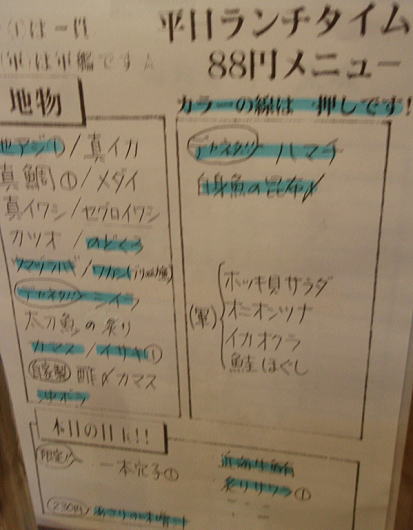 ①は一貫
(軍)は軍艦です
平日ランチタイム
88円メニュー
カラーの線は一押しです!
地物
地アジ①/真イカ
真鯛①/メダイ
真イワシ/セグロイワシ
カツオ/のどくろ
太刀魚の炙り
カマス/イサキ①
自家製 酢〆カマス
ハマチ
白身魚の昆布〆
(軍)
ホッキ貝サラダ
オニオンツナ
イカオクラ
鮭ほぐし
本日の目玉!!
限定
一本穴子①
炙りサワラ①
230円 あさりの味噌汁